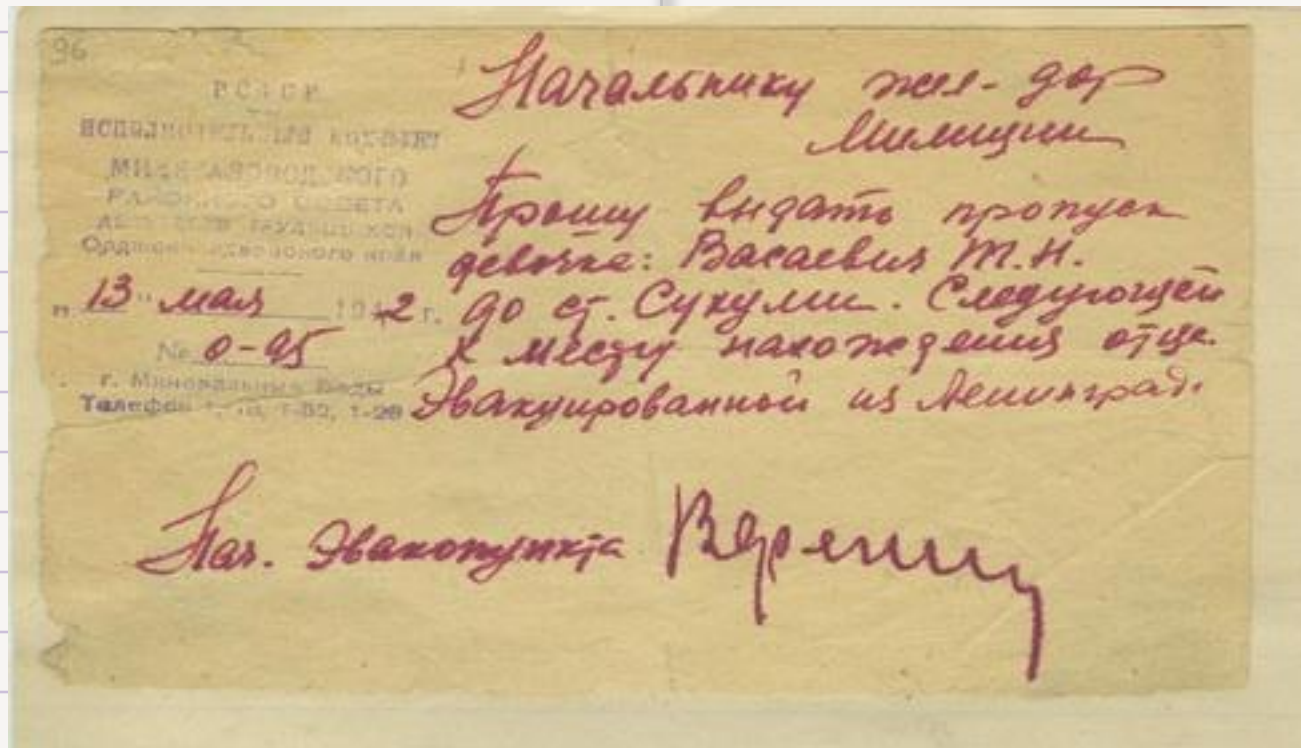 96
РСФСР
ИСПОЛНИТЕЛЬНЫЙ КОМИТЕТ
МИНЕРАЛОВОДСКОГО
РАЙОННОГО СОВЕТА
ДЕПУТАТОВ ТРУДЯЩИХСЯ
Орджоникидзевского края
"13" мая 1942 г.
№ 0-95
г. Минеральные Воды
Телефон 1-28
Начальнику жел-дор
Милиции
Прошу выдать пропуск
девочке: Васаевич Т.Н.
до ст. Сухуми. Следующей
к месту нахождения отца.
Эвакуированной из Ленинград.
Нач. Эвакопункта